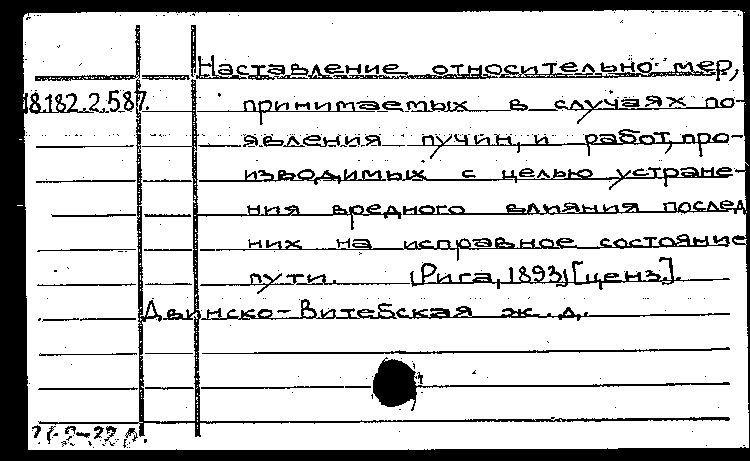 Наставление относительно мер,
18.182.2.587. принимаемых в случаях по-
явления пучин, и работ, про-
изводимых с целью устране-
ния вредного влияния послед
них на исправное состояние
пути. (Рига, 1893) [ценз.].
Двинско-Витебская ж. д.